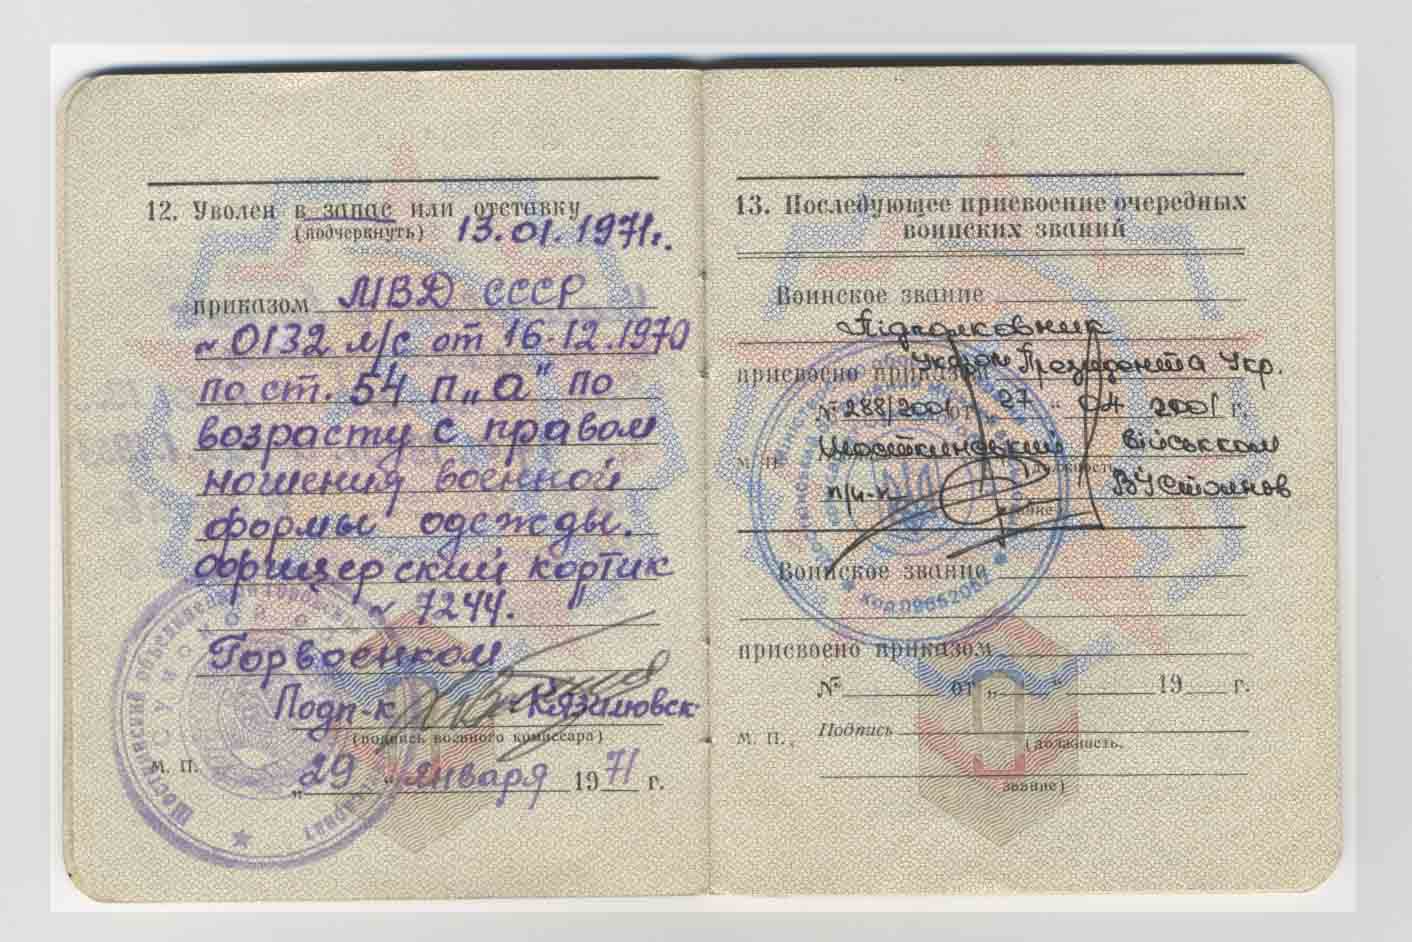 12. Уволен в запас или отставку
(подчеркнуть) 13.01.1971г.
приказом МВД СССР
№ 0132 л/с от 16.12.1970
по ст. 54 п „а" по
возрасту с правом
ношения военной
формы одежды.
Офицерский кортик
№ 7244.
Горвоенком
Подп-к
(подпись военного комиссара)
М. П.
„29 " января 1971 г.
13. Последующее присвоение очередных
воинских званий
Воинское звание
Підполковник
присвоено приказом Указом Президента Укр.
№ 288/2001 от „27 " 04 2001 г.
М. П. Шосткинський військком
(должность
п/п-к В Устоинов
звание)
код 0965208
Воинское звание
присвоено приказом
№ от „ " 19 г.
М. П. Подпись
(должность,
звание)